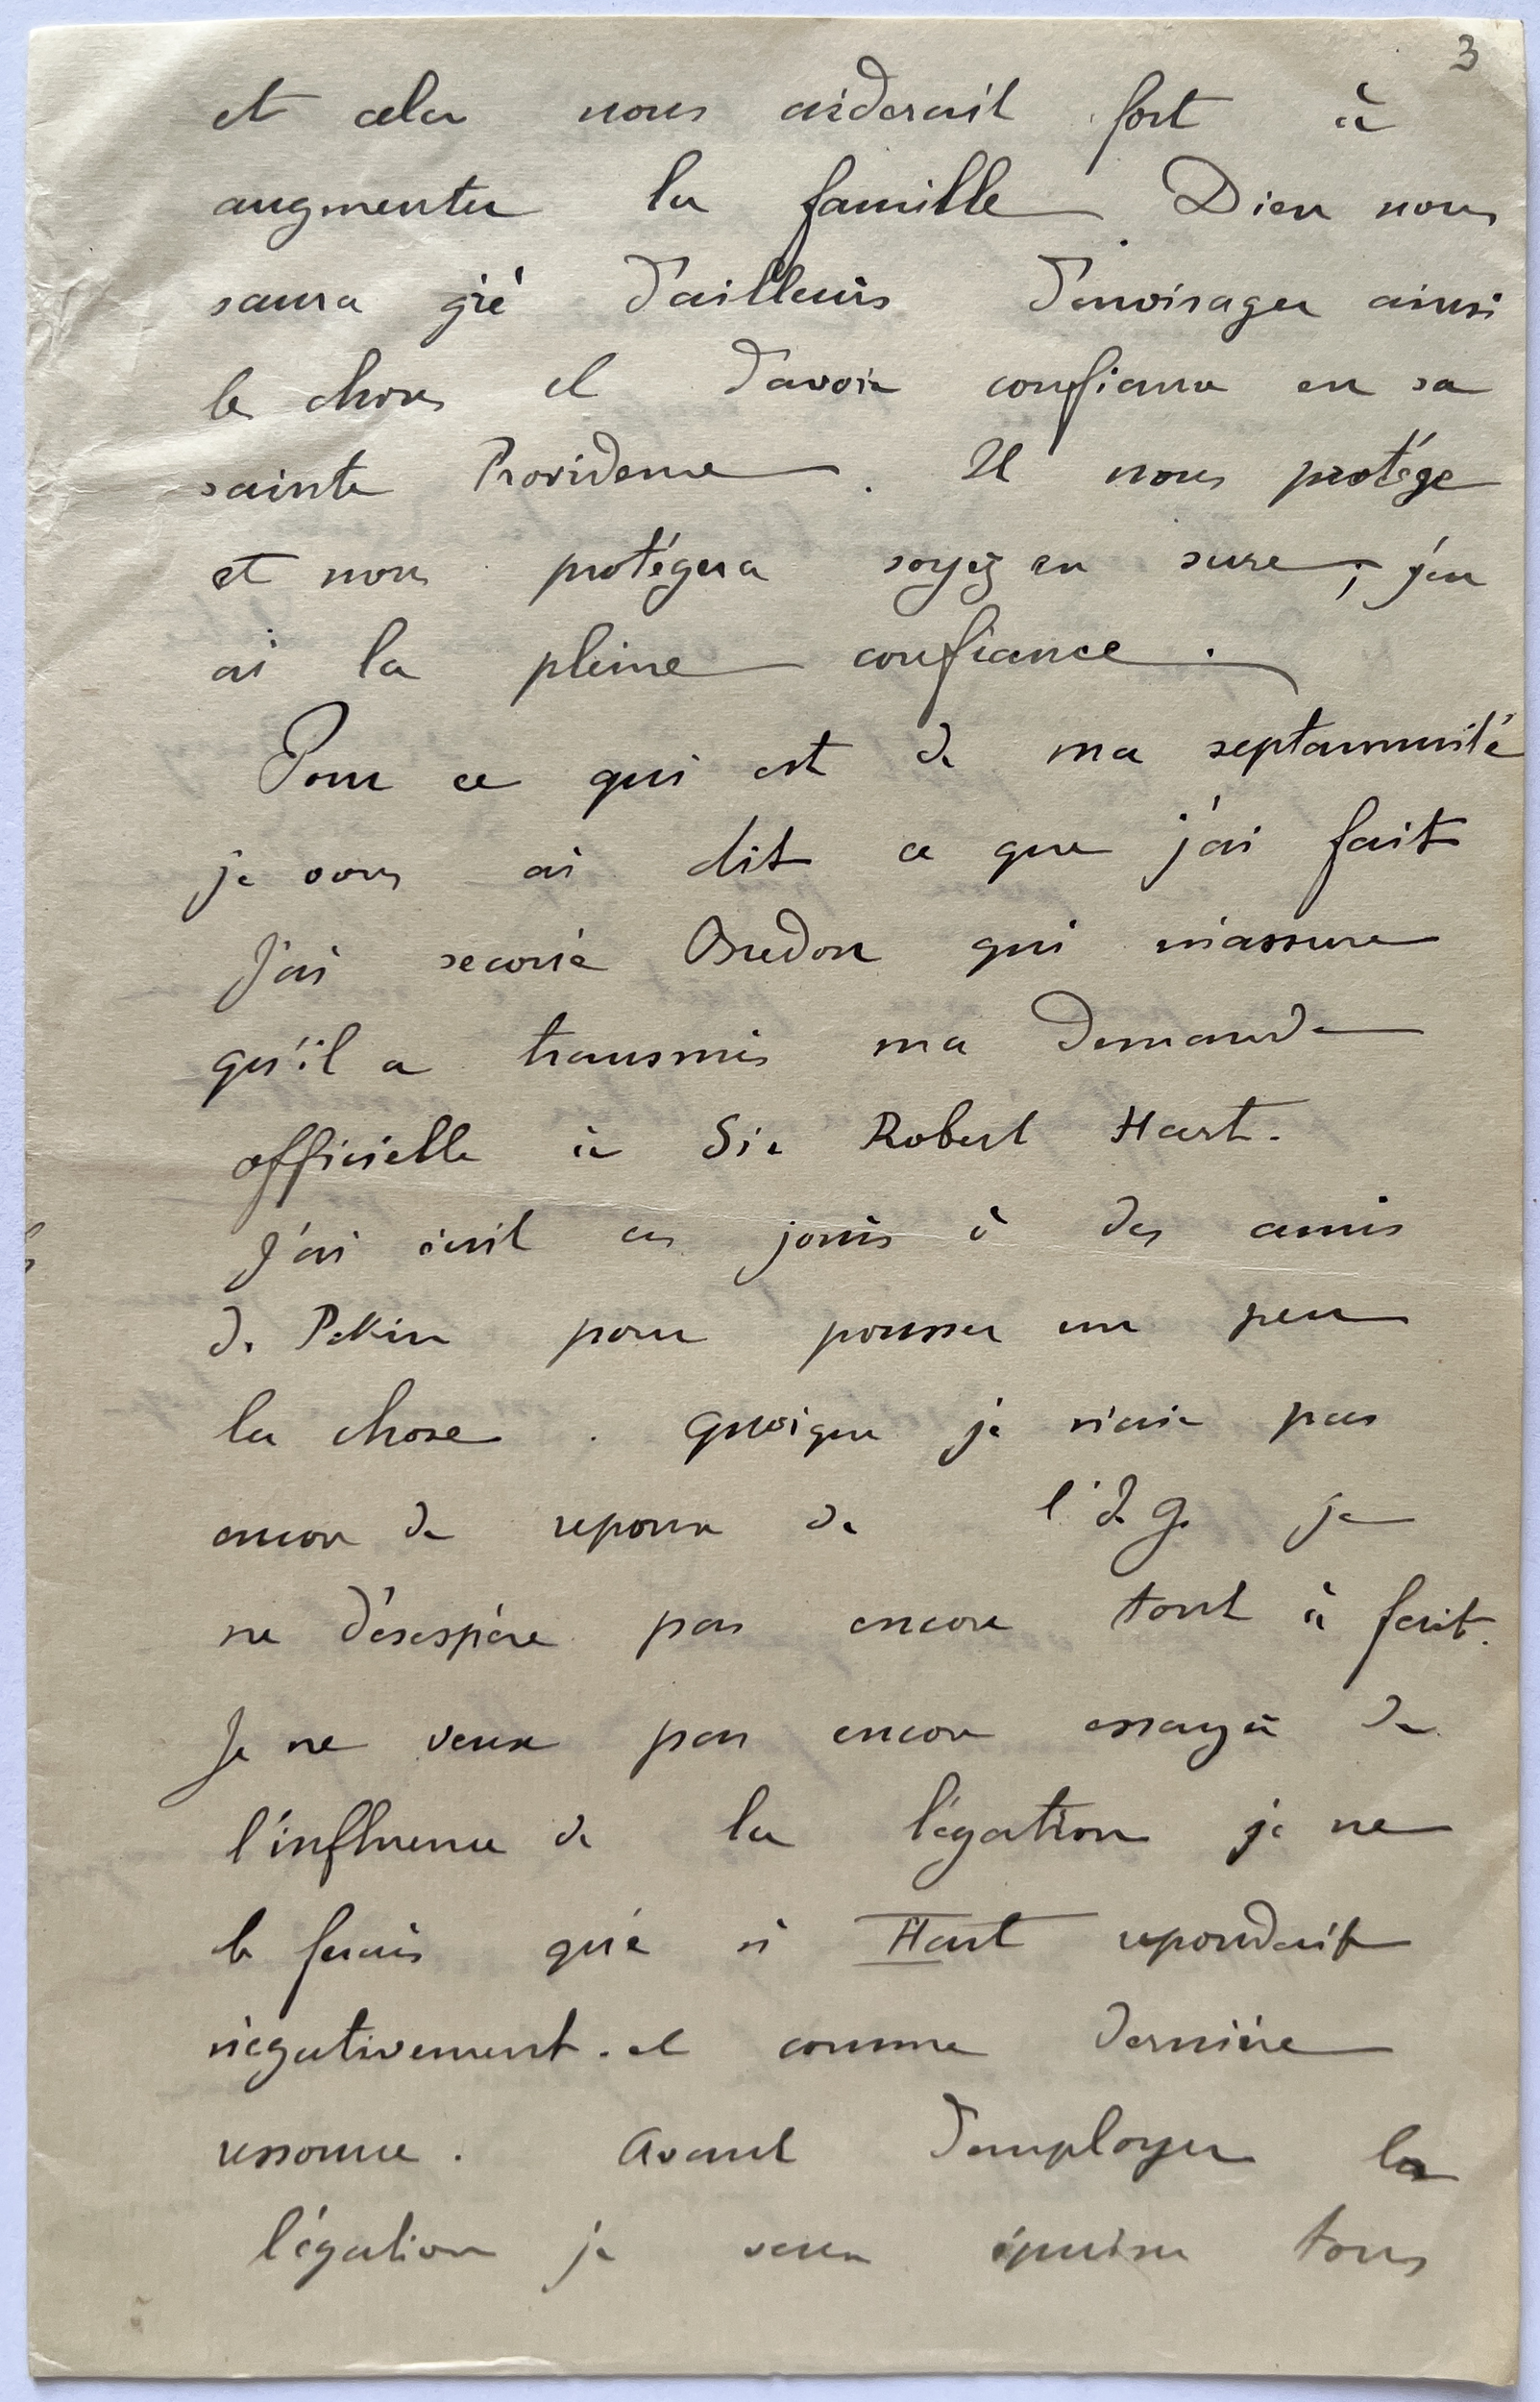 3
et cela nous aiderait fort à
augmenter la famille Dieu nous
saura gré d'ailleurs d'envisager ainsi
les choses et d'avoir confiance en sa
sainte Providence. Il nous protége
et nous protégera soyez en sure, j'en
ai la pleine confiance.
Pour ce qui est de ma septannuité
je vous ai dit ce que j'ai fait
J'ai secoué Bredon qui m'assure
qu'il a transmis ma demande
officielle à Sir Robert Hart.
J'ai écrit ces jours à des amis
de Pekin pour pousser un peu
la chose. Quoique je n'aie pas
encore de reponse de l'I.G. je
ne désespère pas encore tout à fait.
Je ne veux pas encore essayer de
l'influence de la légation je ne
le ferais que si Hart repondait
négativement. et comme dernière
ressource. Avant d'employer la
légation je veux épuiser tous